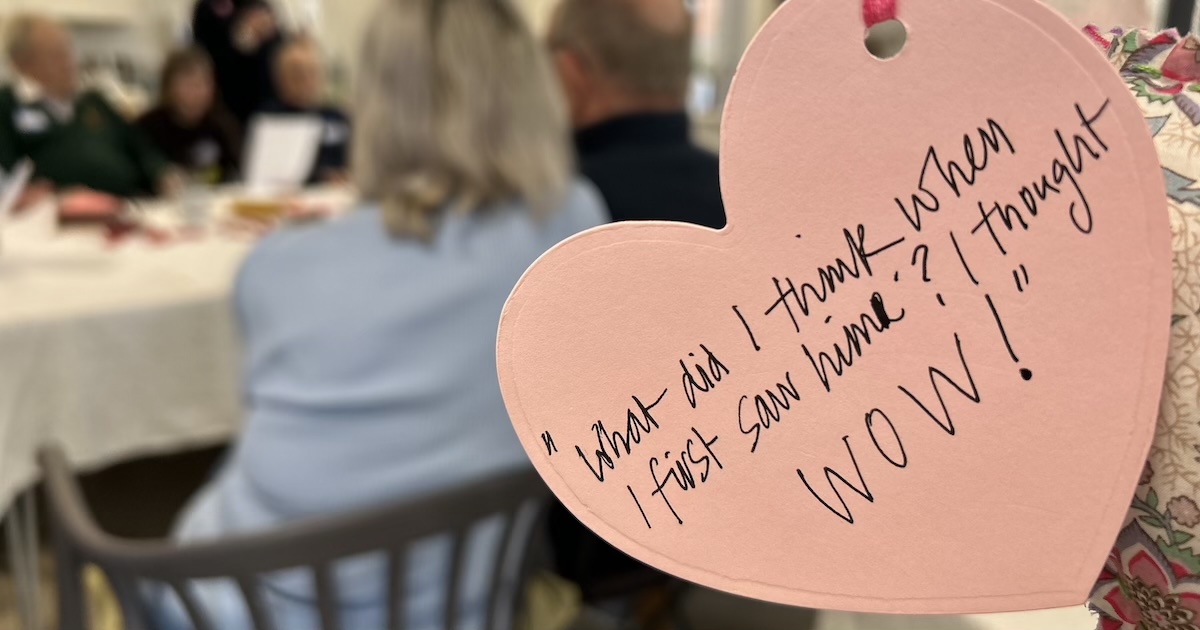 "What did I think when
I first saw him? I thought
WOW!"